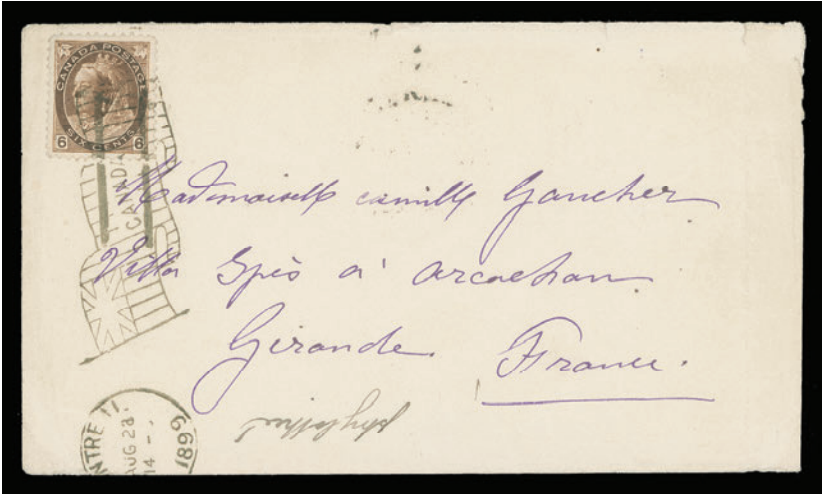 CANADA POSTAGE
SIX CENTS
6 6
CANADA
CANADA
Mademoiselle Camille Gaucher
Villa Spès à Arcachon
Gironde France.
NTRE
AUG 28
14
1899